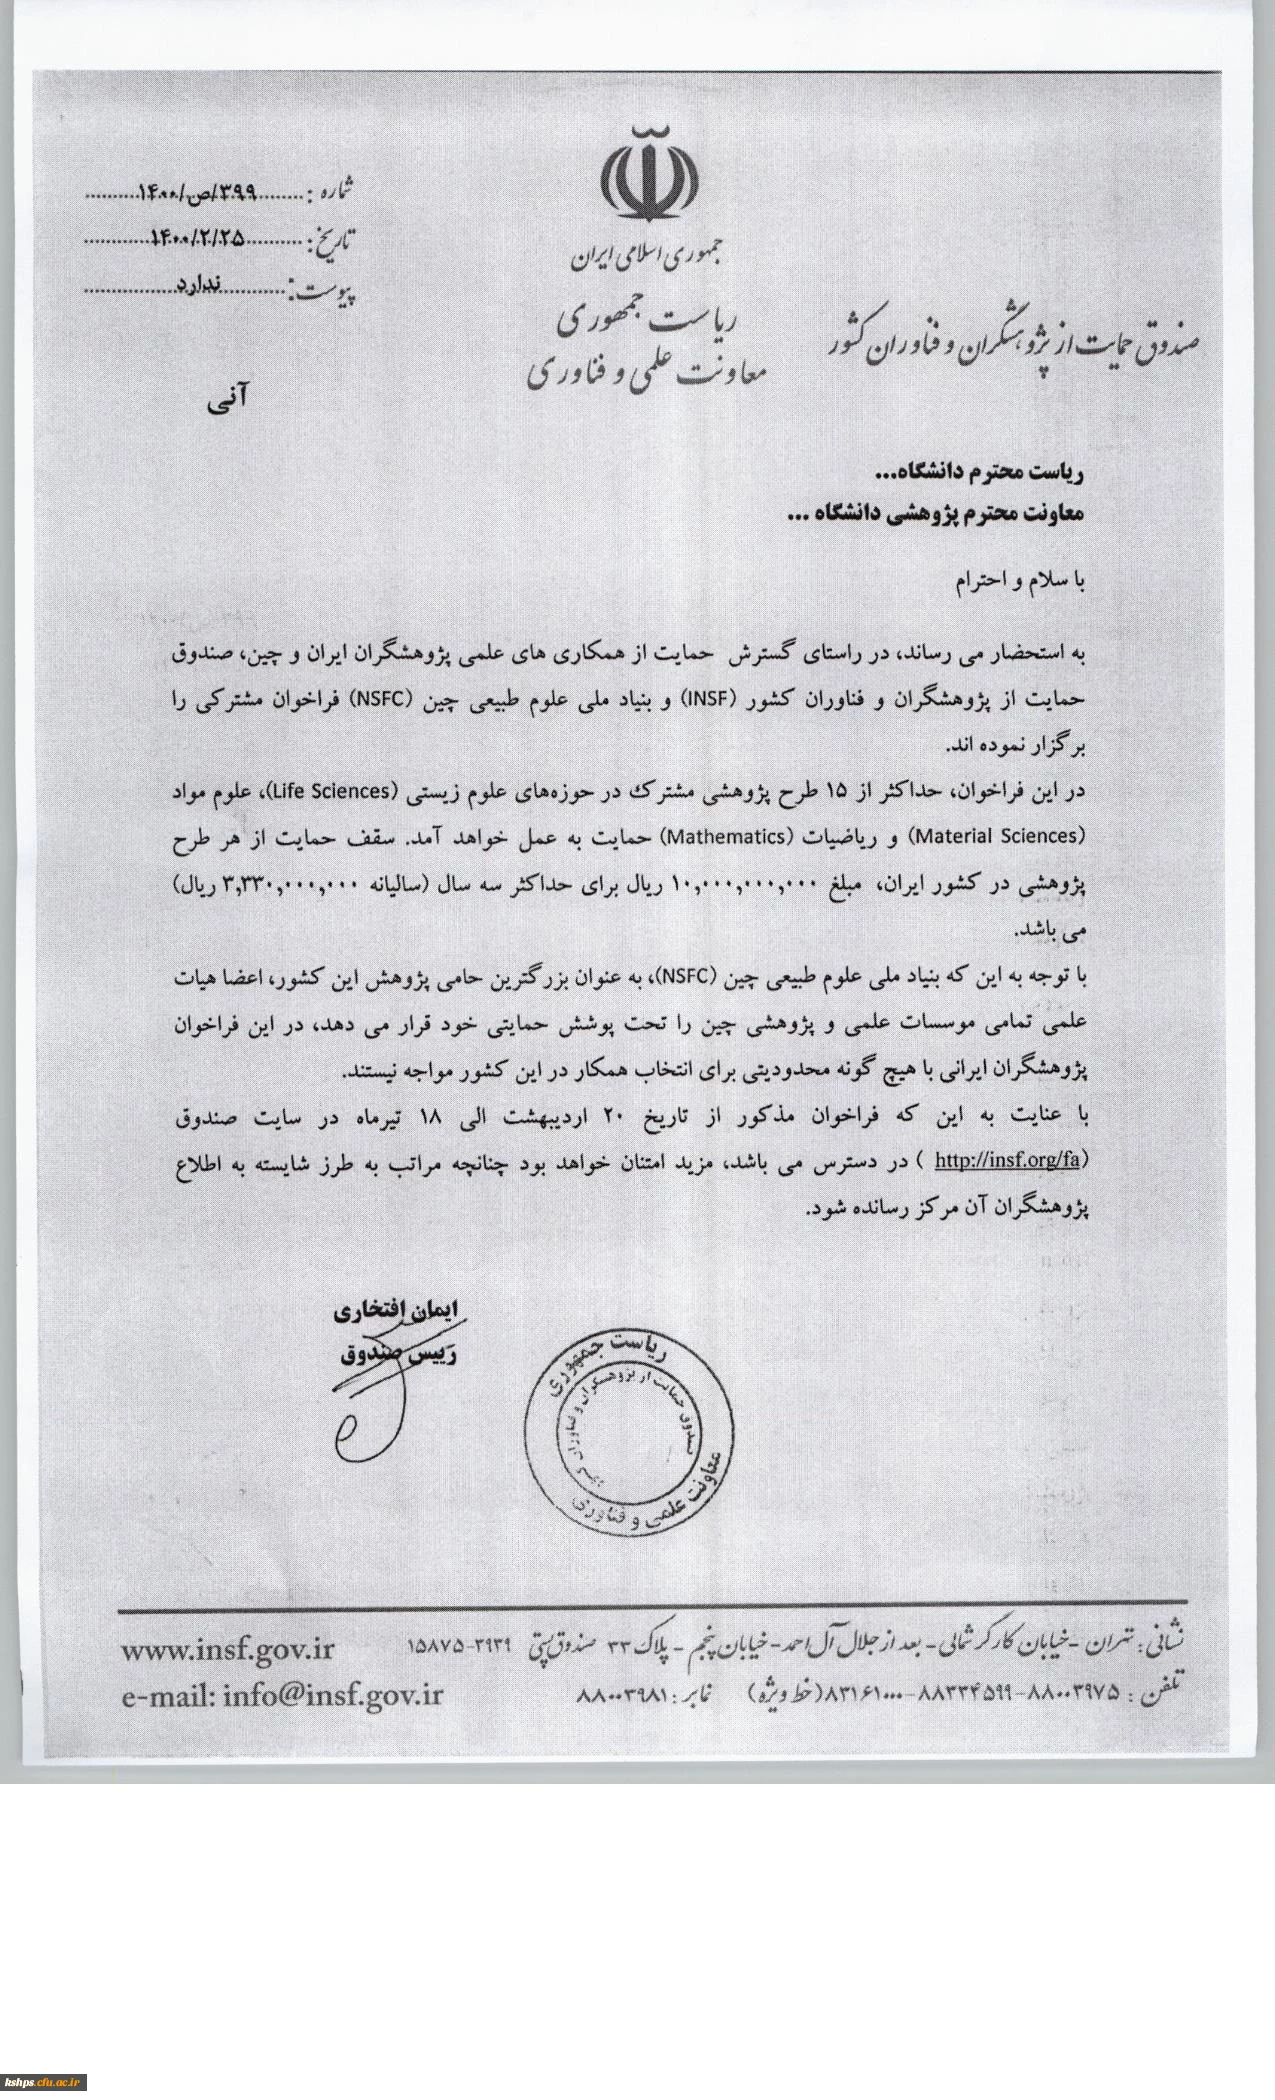 جمهوری اسلامی ایران
ریاست جمهوری
معاونت علمی و فناوری
صندوق حمایت از پژوهشگران و فناوران کشور
شماره : ۱۴۰۰/ص/۳۹۹
تاریخ: ۱۴۰۰/۲/۲۵
پیوست: ندارد
آنی
ریاست محترم دانشگاه...
معاونت محترم پژوهشی دانشگاه ...
با سلام و احترام
به استحضار می رساند، در راستای گسترش حمایت از همکاری های علمی پژوهشگران ایران و چین، صندوق
حمایت از پژوهشگران و فناوران کشور (INSF) و بنیاد ملی علوم طبیعی چین (NSFC) فراخوان مشترکی را
برگزار نموده اند.
در این فراخوان، حداکثر از ۱۵ طرح پژوهشی مشترک در حوزه‌های علوم زیستی (Life Sciences)، علوم مواد
(Material Sciences) و ریاضیات (Mathematics) حمایت به عمل خواهد آمد. سقف حمایت از هر طرح
پژوهشی در کشور ایران، مبلغ ۱۰,۰۰۰,۰۰۰,۰۰۰ ریال برای حداکثر سه سال (سالیانه ۳,۳۳۰,۰۰۰,۰۰۰ ریال)
می باشد.
با توجه به این که بنیاد ملی علوم طبیعی چین (NSFC)، به عنوان بزرگترین حامی پژوهش این کشور، اعضا هیات
علمی تمامی موسسات علمی و پژوهشی چین را تحت پوشش حمایتی خود قرار می دهد، در این فراخوان
پژوهشگران ایرانی با هیچ گونه محدودیتی برای انتخاب همکار در این کشور مواجه نیستند.
با عنایت به این که فراخوان مذکور از تاریخ ۲۰ اردیبهشت الی ۱۸ تیرماه در سایت صندوق
(http://insf.org/fa ) در دسترس می باشد، مزید امتنان خواهد بود چنانچه مراتب به طرز شایسته به اطلاع
پژوهشگران آن مرکز رسانده شود.
ایمان افتخاری
رییس صندوق
ریاست جمهوری
صندوق حمایت از پژوهشگران و فناوران کشور
معاونت علمی و فناوری
نشانی : تهران - خیابان کارگر شمالی - بعد از جلال آل احمد - خیابان پنجم - پلاک ۳۳ صندوق پستی ۱۵۸۷۵-۳۹۳۹
www.insf.gov.ir
تلفن : ۸۸۰۰۳۹۷۵-۸۸۳۳۴۵۹۹-۸۳۱۶۱۰۰۰ (خط ویژه) نمابر : ۸۸۰۰۳۹۸۱
e-mail: info@insf.gov.ir
kshps.cfu.ac.ir